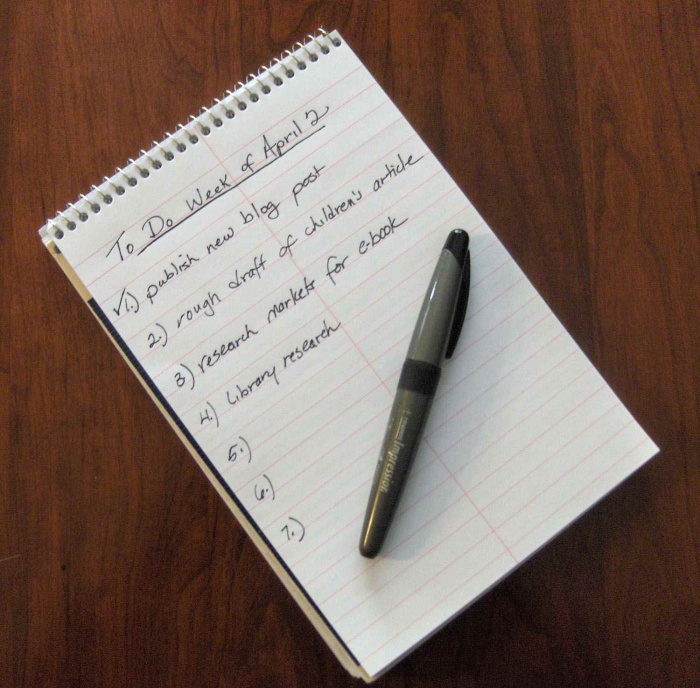 To Do Week of April 2
✓1.) publish new blog post
2.) rough draft of children's article
3.) research markets for e-book
4.) Library research
5.)
6.)
7.)
Impression